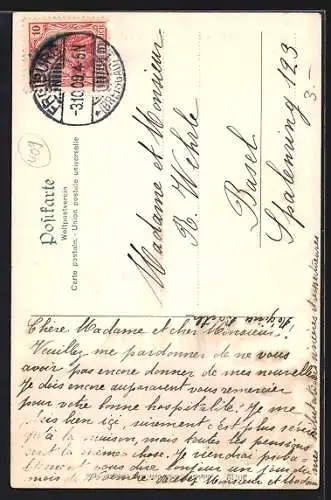 10
FREIBURG
-3.10.09.4-5N
(BREISGAU)
409
Postkarte
Weltpostverein
Carte postale. - Union postale universelle
Madame et Monsieur
R. Wehrle
Basel
Spalenring 123
3.-
Chère Madame et cher Monsieur!
Veuillez me pardonner de ne vous
avoir pas encore donner de mes nouvelles
Je dois encore auparavant vous remercier
pour votre bonne hospitalité. Je me
bien ici, surement c'est plus sérieux
qu'à la maison, mais toutes les
la même chose. Je viendrai
vous dire bonjour un jour du
mois de Monsieur et Madame
sincères et